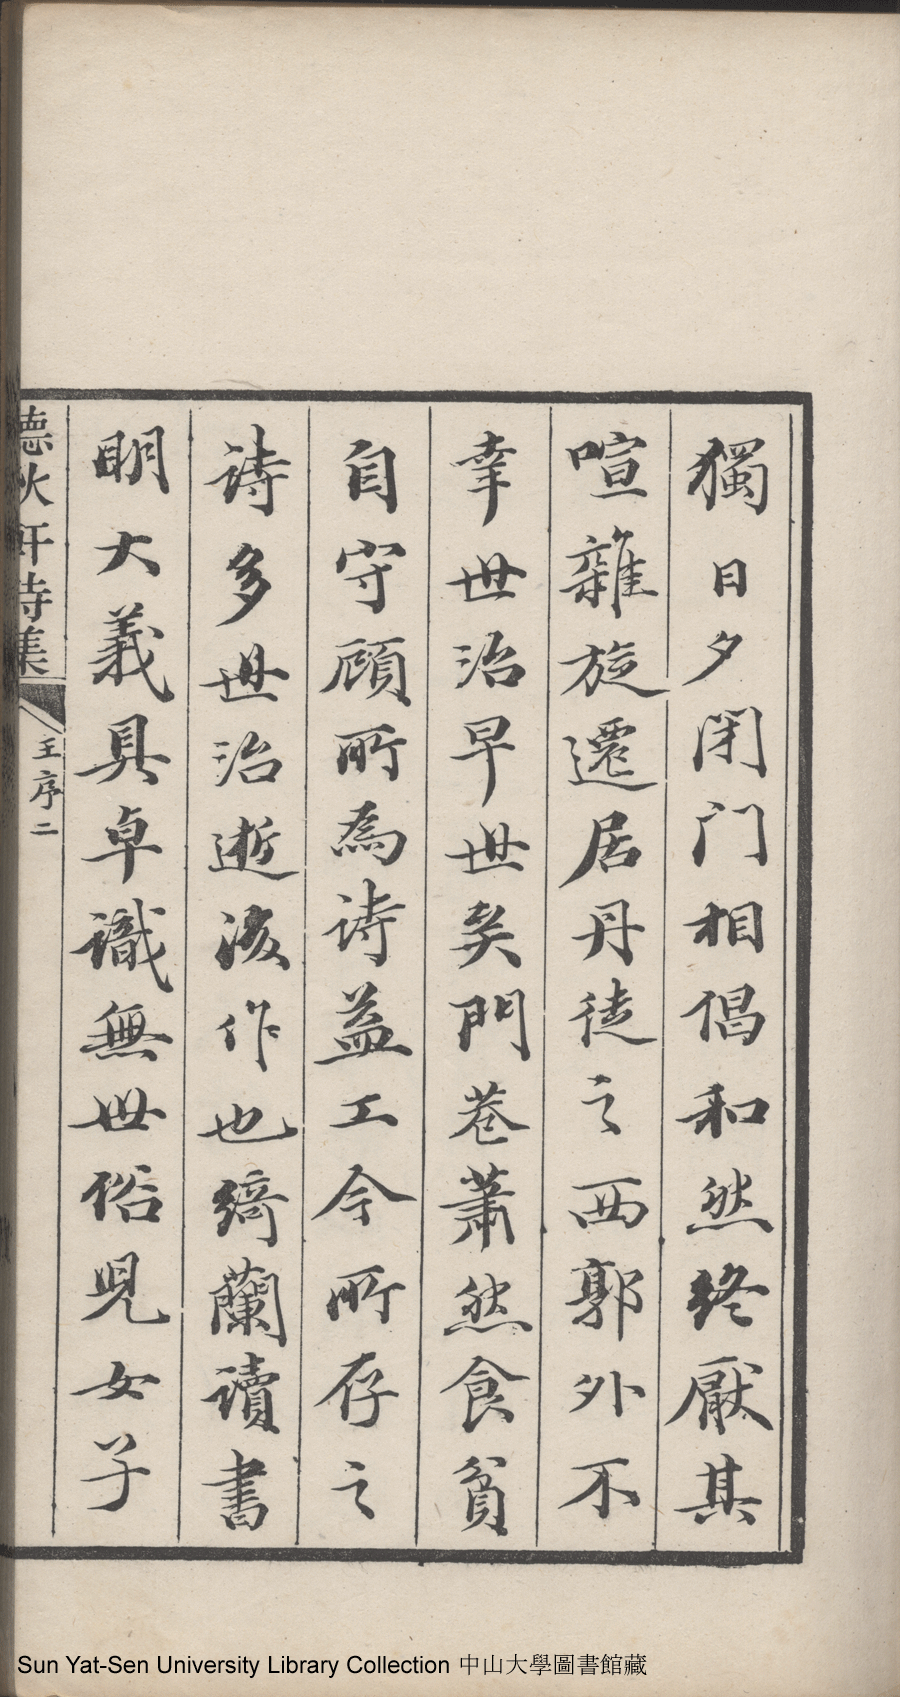 獨日夕閉門相倡和然終厭其
喧雜旋遷居丹徒之西郭外不
幸世治早世矣門巷蕭然食貧
自守顧所為詩益工今所存之
詩多世治逝後作也綺蘭讀書
明大義具卓識無世俗兒女子
德秋軒詩集
王序二
Sun Yat-Sen University Library Collection 中山大學圖書館藏